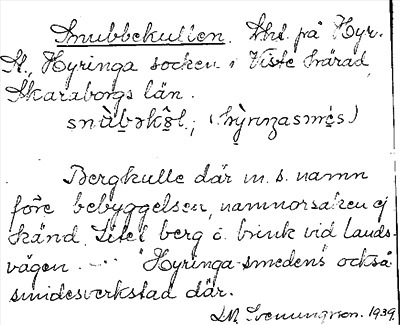 Snubbekullen. Lht. på Hyr.
St., Hyringa socken i Viste härad,
Skaraborgs län.
snùb̬əkɵ̂l., (hỳrŋasmés)
Bergkulle där m. s. namn
före bebyggelsen, namnorsaken ej
känd. Litet berg o. brink vid lands-
vägen. — "Hyringa-smedens" också
smidesverkstad där.
Svenungson. 1939.